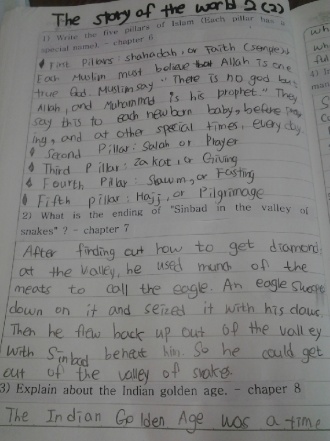 The story of the world 2 (2)
1) Write the five pillars of Islam (Each pillar has a
special name). - chapter 6
First Pillars: shahadah, or Faith
Each Muslim must believe that Allah is one
true God. Muslim say "There is no god but
Allah, and Muhammad is his prophet." They
say this to each newborn baby, before
ing, and at other special times, every day.
Second Pillar: Salah or Prayer
Third Pillar: Zakat, or Giving
Fourth Pillar: Shawm, or Fasting
Fifth pillar: Hajj, or Pilgrimage
2) What is the ending of "Sinbad in the valley of
snakes" ? - chapter 7
After finding out how to get diamond
at the valley, he used much of the
meats to call the eagle. An eagle
down on it and seized it with his claws.
Then he flew back up out of the valley
with Sinbad him. So he could get
out of the valley of snakes.
3) Explain about the Indian golden age. - chaper 8
The Indian Golden Age was a time
wh
ful
4)
man